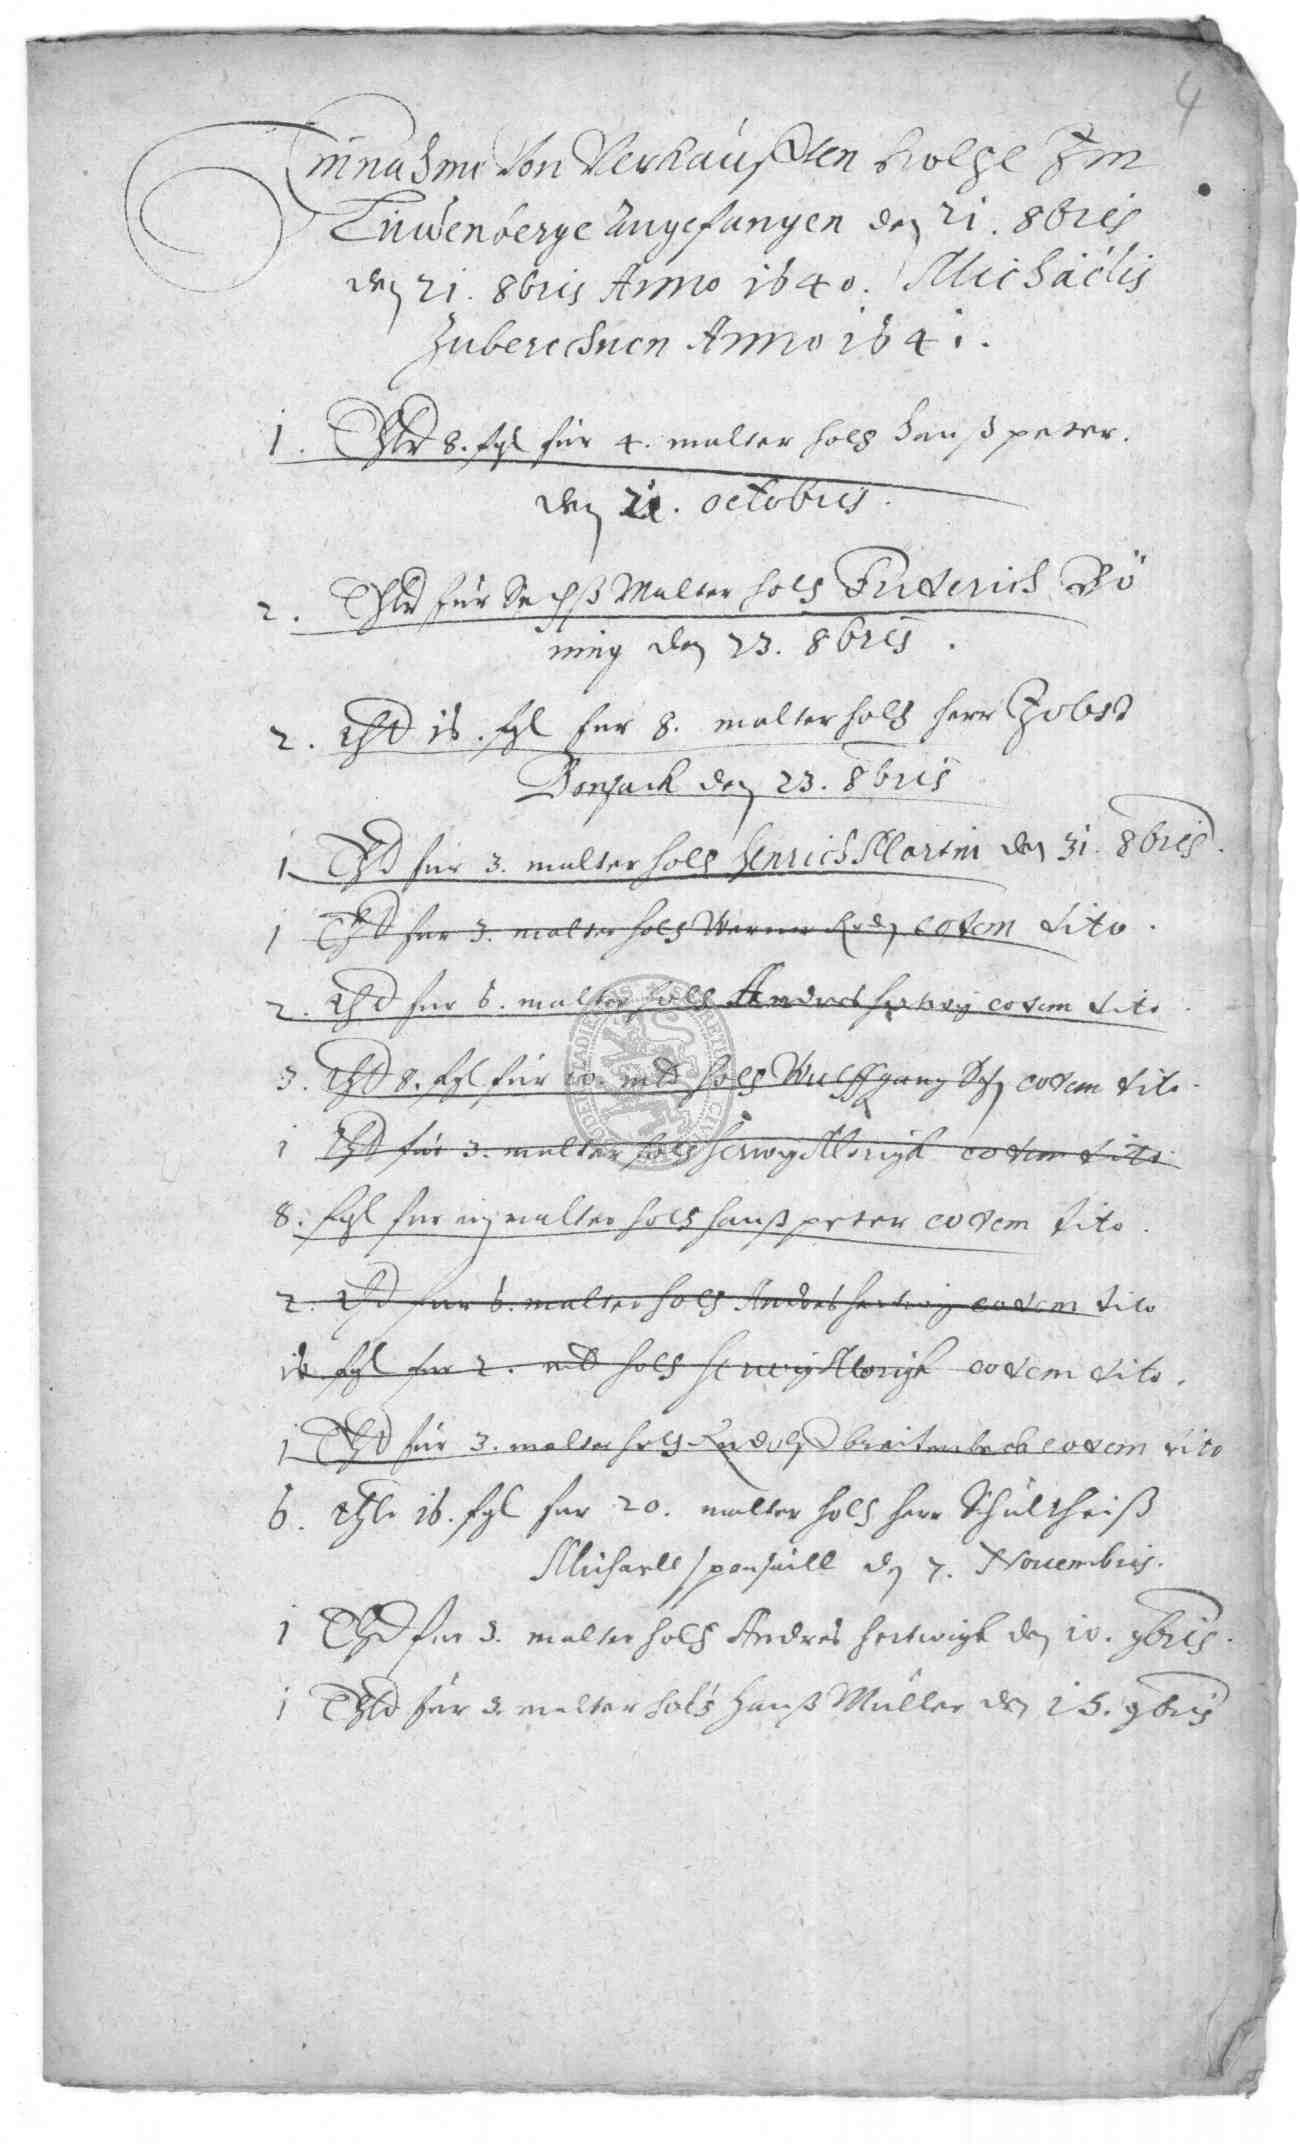 4
Einnahme Von Verkaufften Holtze Im
Lindenberge Angefangen den 21. 8bris
den 21. 8bris Anno 1640. Michaelis
Zuberechnen Anno 1641.
1. Thlr 8. fgl für 4. malter holtz Hanß peter.
den 21. octobris.
2. Thlr für Sechß Malter holtz Friderich Bö
ning den 23. 8bris.
2. Thlr 16. fgl für 8. malter holtz herr Jobst
Bonsack den 23. 8bris
1 Thlr für 3. malter holtz Henrich Martin den 31. 8bris.
1 Thlr für 3. malter holtz Werner eodem dito.
2. Thlr für 6. malter holtz Andres hertwig eodem dito.
3. Thlr 8. fgl für 10. mltr holtz Wulffgang eodem dito.
1 Thlr für 3. malter holtz eodem dito
8. fgl für ein malter holtz hanß peter eodem dito.
2. Thlr für 6. malter holtz Andres hertwig eodem dito
16 fgl für 2. mltr holtz eodem dito.
1 Thlr für 3. malter holtz Rudolff breitenbach eodem dito
6. Thlr 16. fgl für 20. malter holtz herr Schultheiß
Michaell den 7. Novembris.
1 Thlr für 3. malter holtz Andres hertwigk den 10. 9bris.
1 Thlr für 3. malter holtz Hanß Müller den 15. 9bris